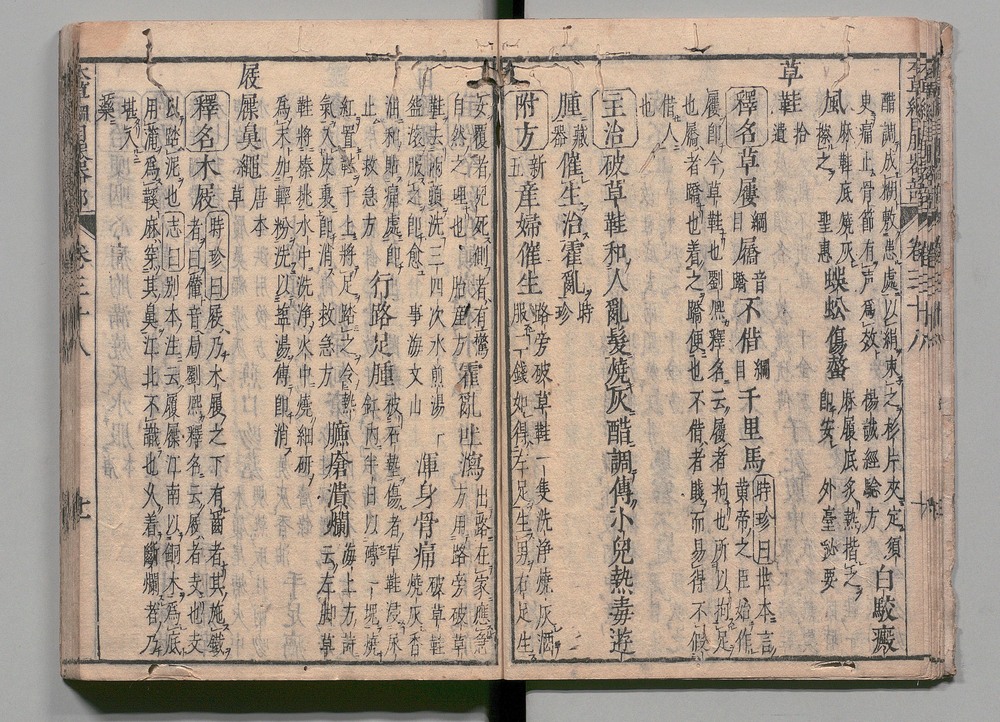 醋調成糊敷患處以絹束之杉片夾定須
東痛止骨節有声爲效 楊誠經驗方 白駁癜
風 麻鞋底燒灰擦之 聖惠 蜈蚣傷螫 麻履底炙熱揩之即安 外臺秘要
草鞋 拾遺
釋名 草屨 綱目 屩 音蹻 不借 綱目 千里馬 時珍曰世本言黃帝之臣始作
屨即今草鞋也劉熙釋名云屨者拘也所以拘足
也屩者蹻也着之蹻便也不借者賤而易得不假
借人也
主治 破草鞋和人亂髮燒灰醋調傅小兒熱毒遊
腫 藏器 催生治霍亂 時珍
附方 新五 產婦催生 路旁破草鞋一隻洗净燒灰酒服二錢如得左足生男右足生
女覆者兒死側者有驚自然之理也 胎產方 霍亂吐瀉 出路在家應急方用路旁破草
鞋去兩頭洗三四次水煎湯一盌滾服之即愈 事海文山 渾身骨痛 破草鞋燒灰香
油和貼痛處即止 救急方 行路足腫 被石墊傷者草鞋浸尿缸内半日以磚一塊燒
紅置鞋于上將足踏之令熱氣入皮裏即消 救急方 臁瘡潰爛 海上方詩云左脚草
鞋將棒挑水中洗淨火中燒細研爲末加輕粉洗以鹽湯傅即消
屐屧鼻繩 唐本草
釋名 木屐 時珍曰屐乃木履之下有齒者其施鐵者曰𣝅音局劉熙釋名云屐者支也支
以踏泥也志曰别本注云屐屧江南以銅木爲底
用蒲爲鞋麻穿其鼻江北不識也久着斷爛者乃堪入藥
本草綱目服器部 卷三十八